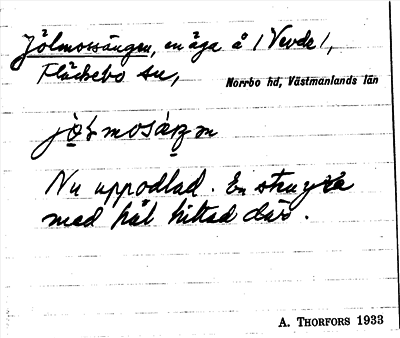 Jölmossängen, en äga å /Vevde/,
Fläckebo sn,
Norrbo hd, Västmanlands län
Nu uppodlad. En stenyxa
med hål hittad där.
A. THORFORS 1933